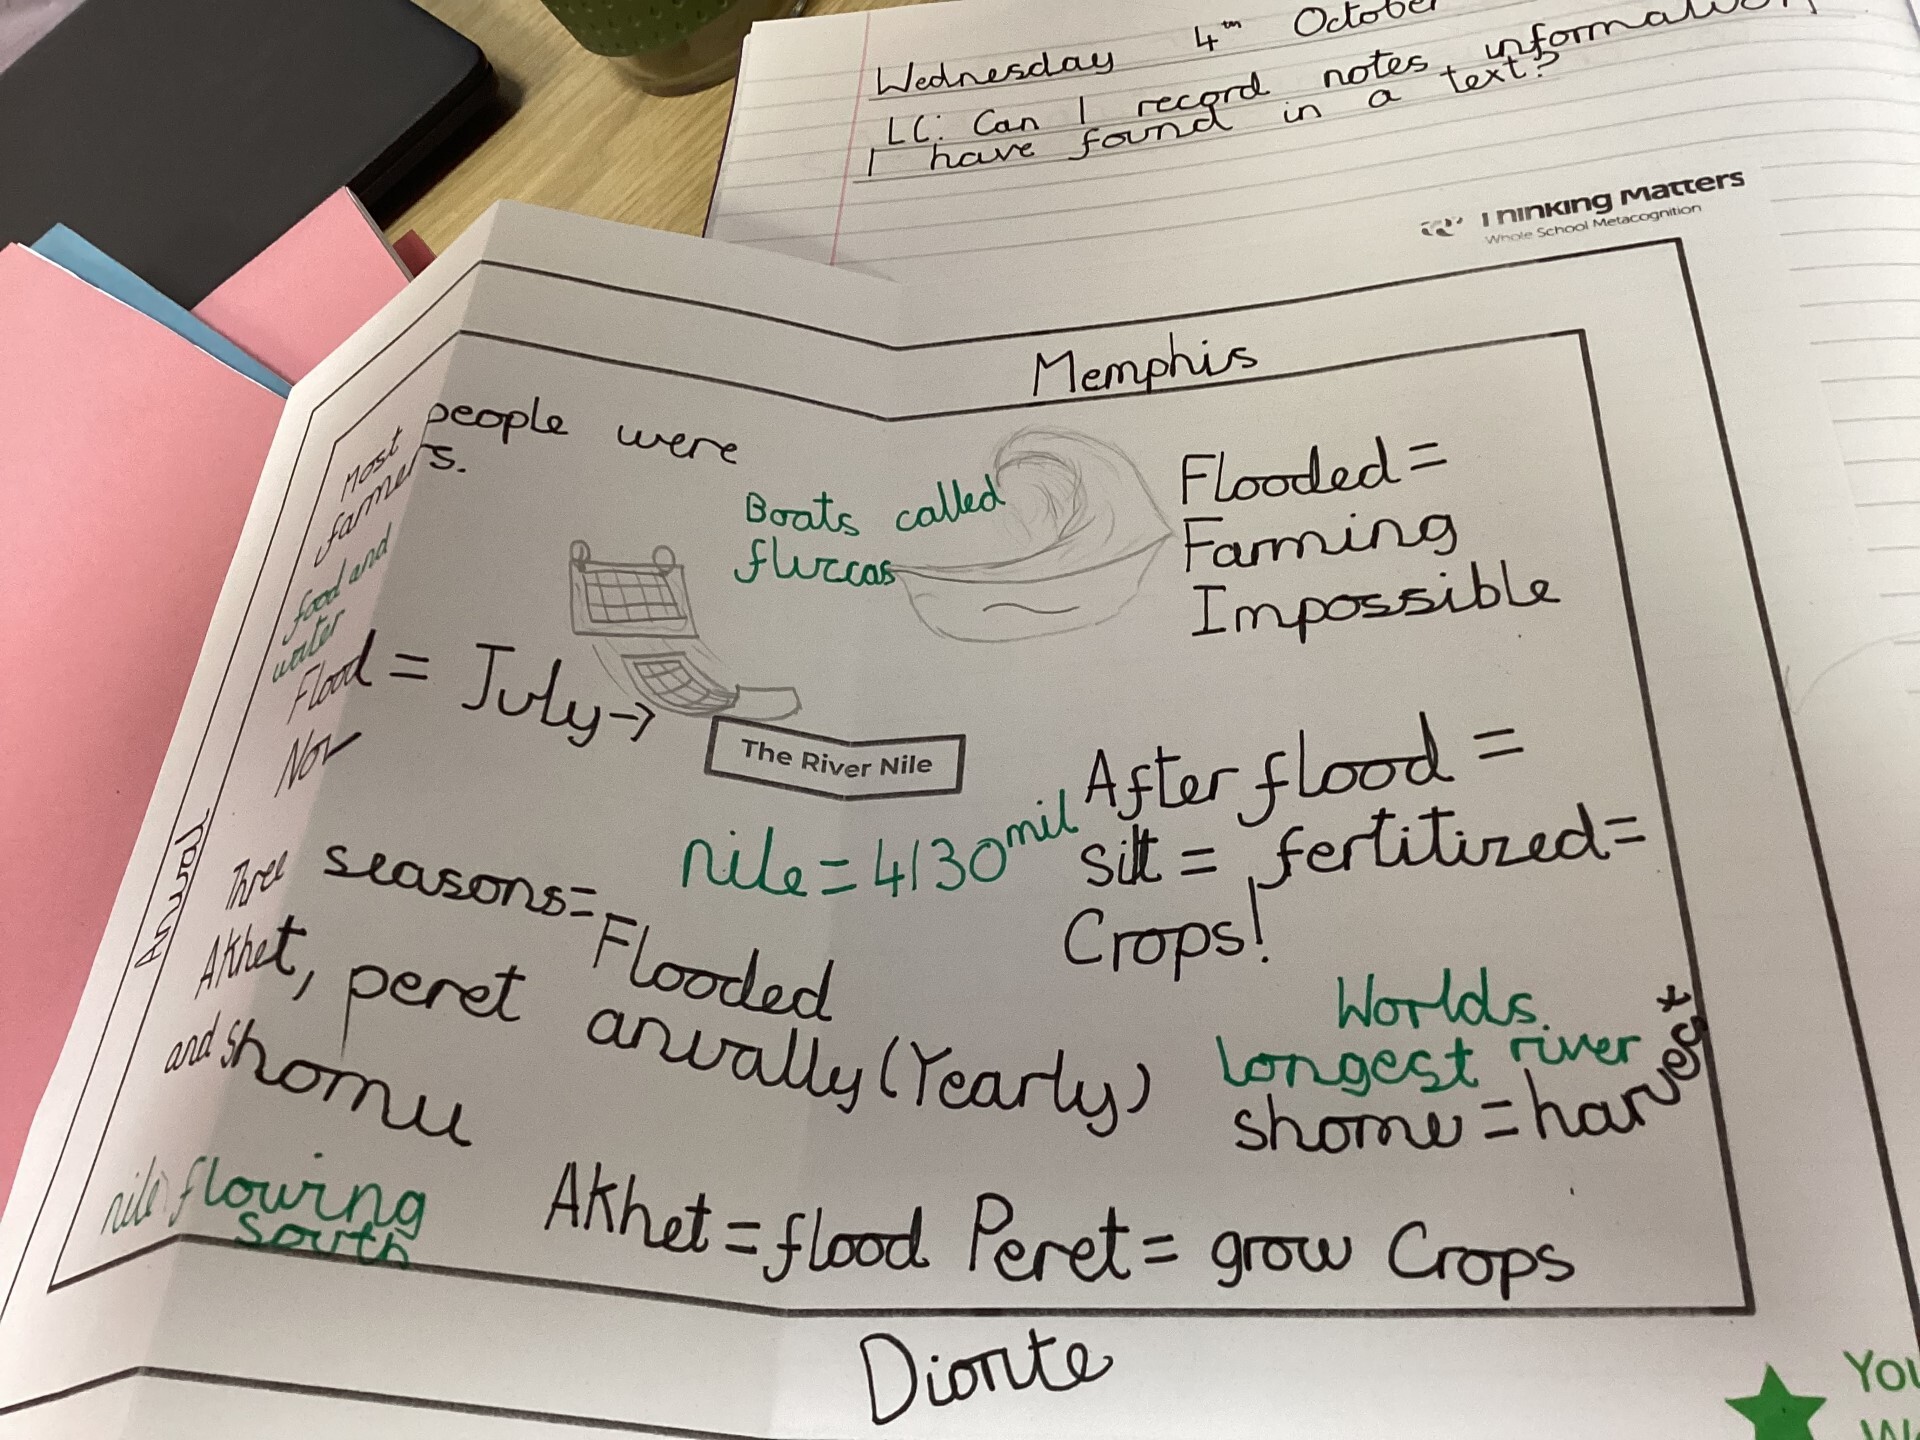 Wednesday 4th October
LC: Can I record notes information
I have found in a text?
Thinking Matters
Whole School Metacognition
Memphis
Most people were
farmers.
food and
water
Boats called
fluccas
Flooded =
Farming
Impossible
Flood = July →
Nov
The River Nile
After flood =
silt = fertitized =
Crops!
nile = 4130 mil
Anual
Three seasons =
Akhet, peret
and Shomu
Flooded
anually (Yearly)
Worlds
longest river
shomu = harvest
nile flowing
south
Akhet = flood Peret = grow Crops
Diorite